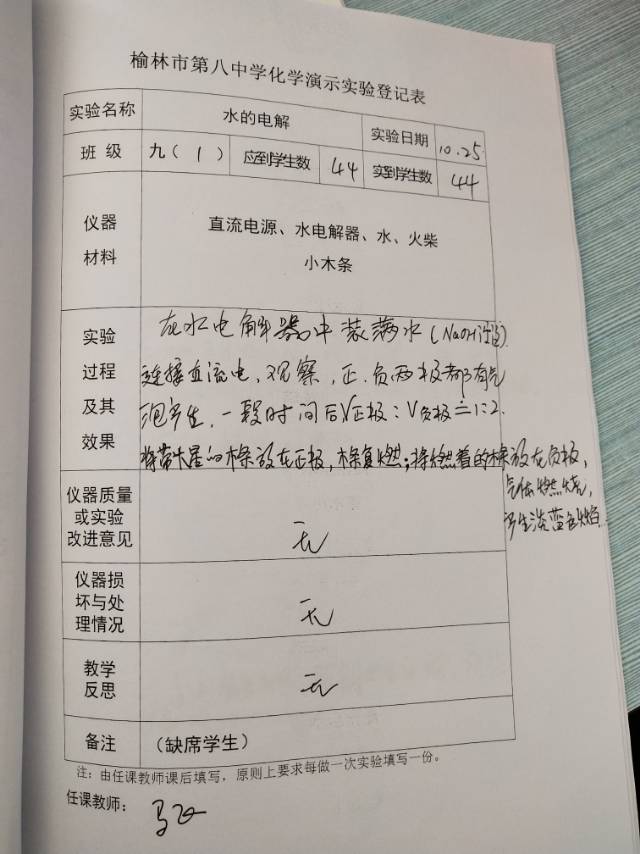 榆林市第八中学化学演示实验登记表
实验名称 水的电解 实验日期 10.25
班 级 九( 1 ) 应到学生数 44 实到学生数 44
仪器 材料 直流电源、水电解器、水、火柴
小木条
实验 过程 及其 效果 在水电解器中装满水(NaOH溶液)
连接直流电,观察,正.负两极都有气
泡产生,一段时间后V正极:V负极≈1:2.
将带火星的木条放在正极,木条复燃;将燃着的木条放在负极,
气体燃烧,
产生淡蓝色火焰.
仪器质量 或实验 改进意见 无
仪器损 坏与处 理情况 无
教学 反思 无
备注 (缺席学生)
注:由任课教师课后填写,原则上要求每做一次实验填写一份。
任课教师: 马